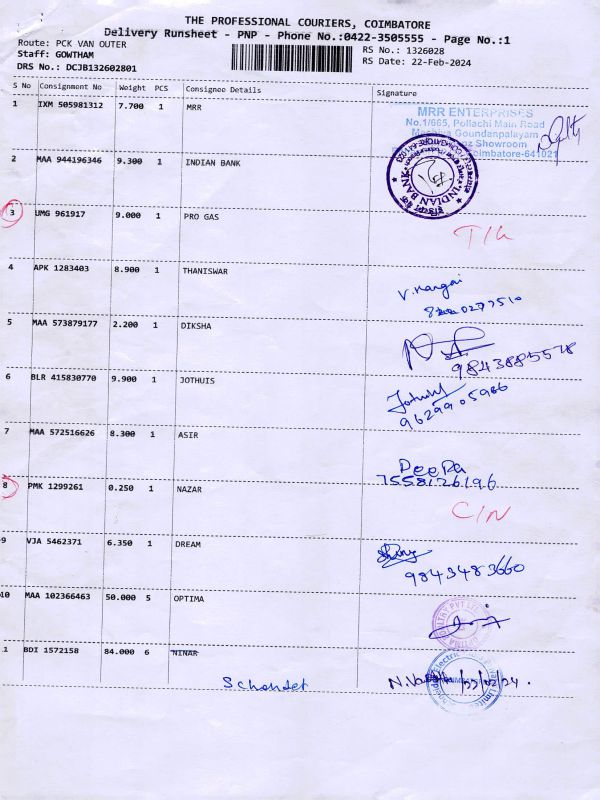 THE PROFESSIONAL COURIERS, COIMBATORE
Delivery Runsheet - PNP - Phone No.:0422-3505555 - Page No.:1
Route: PCK VAN OUTER
RS No.: 1326028
Staff: GOWTHAM
RS Date: 22-Feb-2024
DRS No.: DCJB132602801
S No Consignment No Weight PCS Consignee Details Signature
1 IXM 505981312 7.700 1 MRR
MRR ENTERPRISES
No.1/665, Pollachi Main Road
Goundanpalayam
Showroom
Coimbatore-641021
2 MAA 944196346 9.300 1 INDIAN BANK
INDIAN BANK
3 UMG 961917 9.000 1 PRO GAS
4 APK 1283403 8.900 1 THANISWAR
V. Mangai
5 MAA 573879177 2.200 1 DIKSHA
9843885578
6 BLR 415830770 9.900 1 JOTHUIS
9629905986
7 MAA 572516626 8.300 1 ASIR
DeePa
7558126196
8 PMK 1299261 0.250 1 NAZAR
C/N
9 VJA 5462371 6.350 1 DREAM
9843483660
10 MAA 102366463 50.000 5 OPTIMA
1 BDI 1572158 84.000 6 NINAR